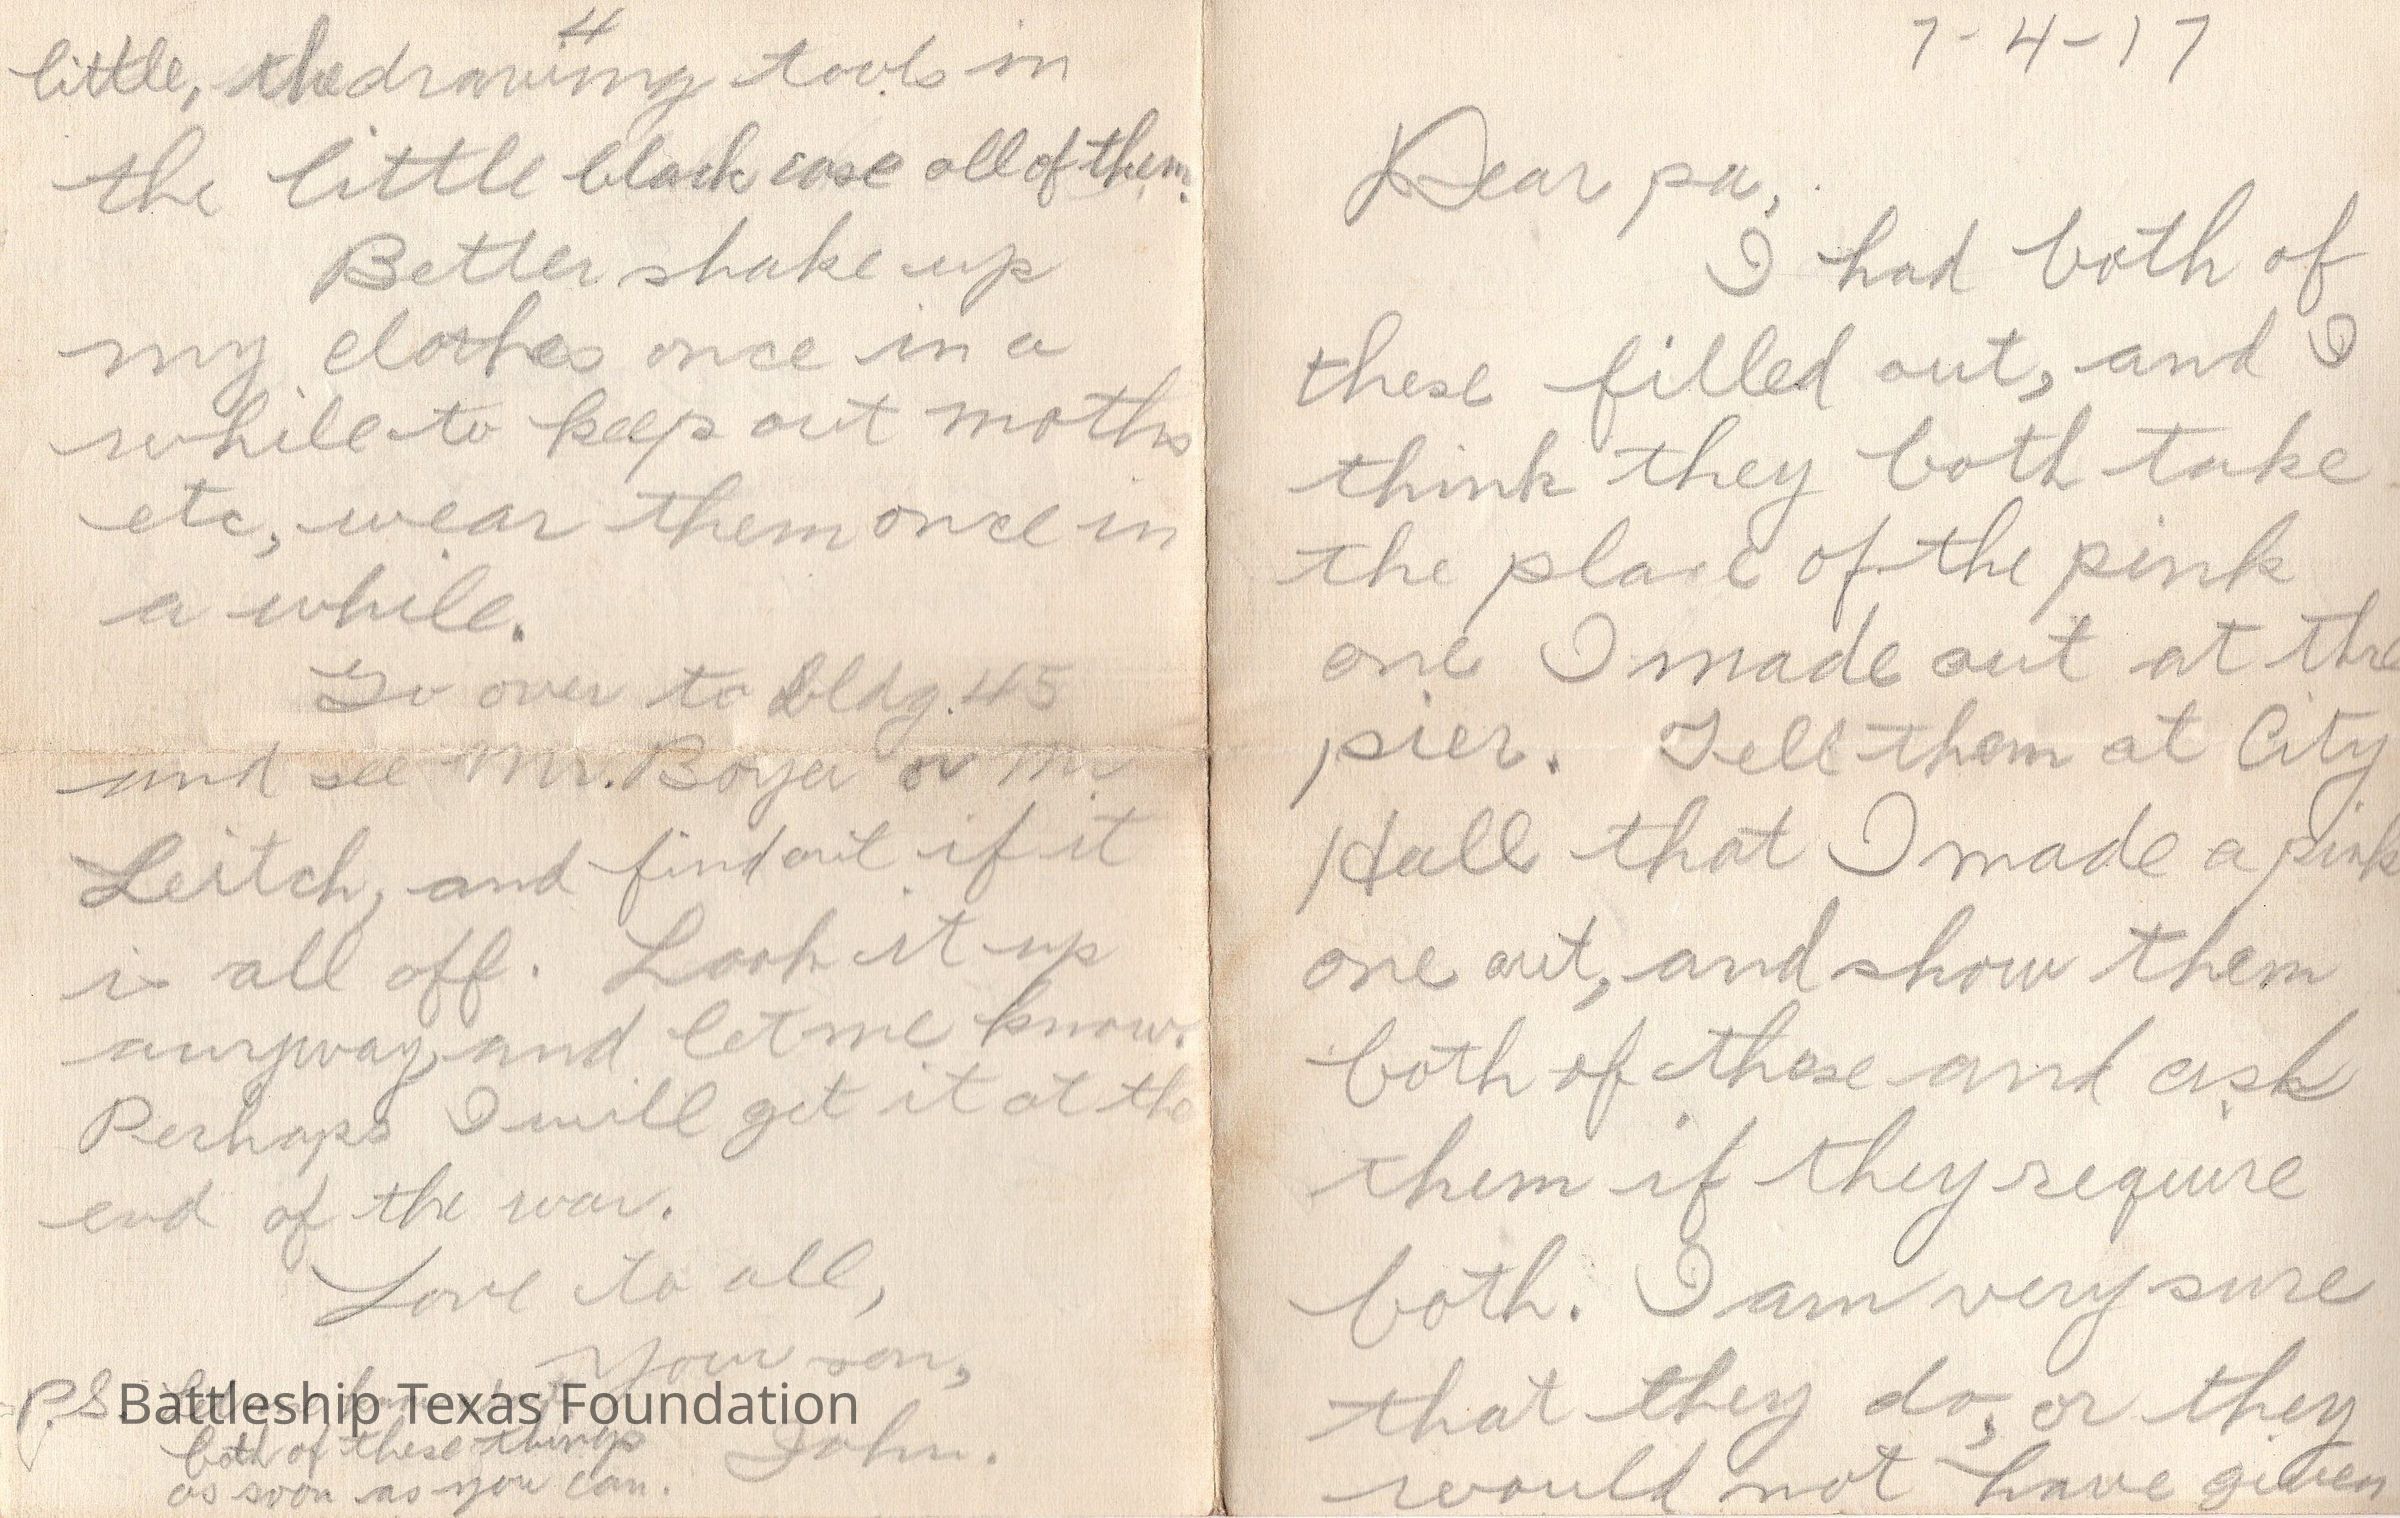 4
little, the drawing tools in
the little black case all of them.
Better shake up
my clothes once in a
while to keep out moths
etc, wear them once in
a while.
Go over to bldg. 45
and see Mr. Boyer or Mr.
Leitch, and find out if it
is all off. Look it up
anyway, and let me know.
Perhaps I will get it at the
end of the war.
Love to all,
Your son,
John.
P.S.
both of these things
as soon as you can.
Battleship Texas Foundation
7-4-17
Dear pa,
I had both of
these filled out, and I
think they both take
the place of the pink
one I made out at the
pier. Tell them at City
Hall that I made a pink
one out, and show them
both of these and ask
them if they require
both. I am very sure
that they do, or they
would not have given